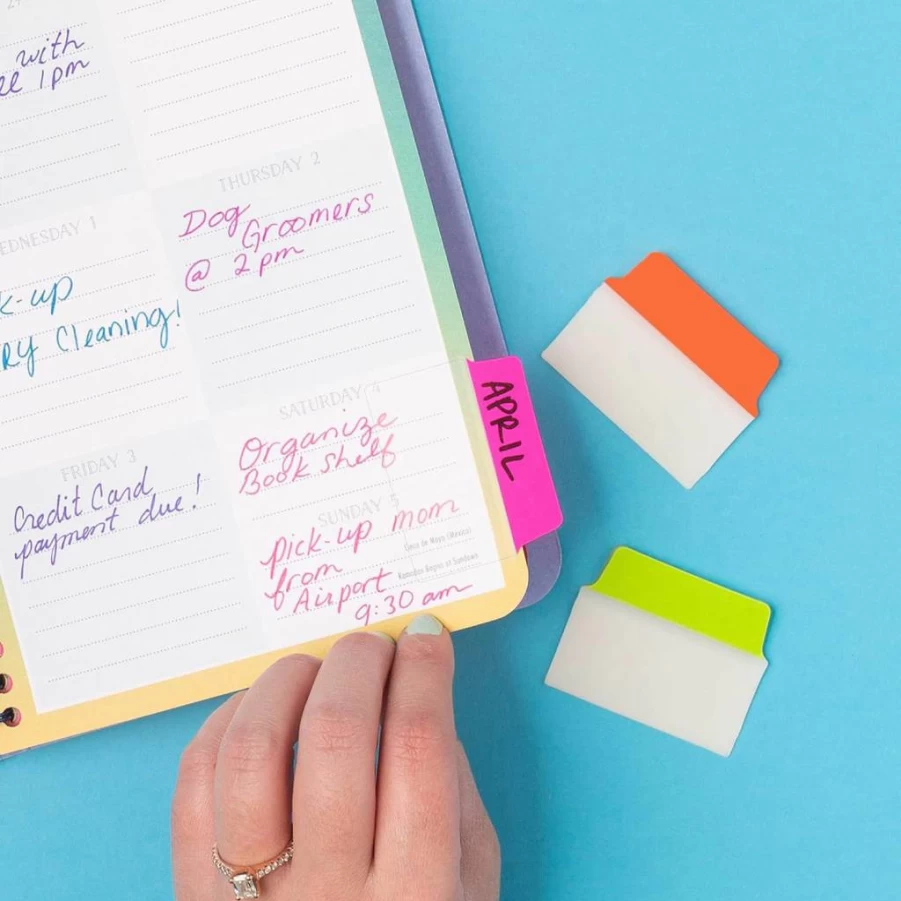 with
1pm
THURSDAY 2
Dog
Groomers
@ 2pm
WEDNESDAY 1
k-up
RY Cleaning!
APRIL
SATURDAY 4
Organize
Book shelf
FRIDAY 3
Credit Card
payment due!
SUNDAY 5
Pick-up mom
from
Airport
9:30 am
Cinco de Mayo (Mexico)
Ramadan Begins at Sundown